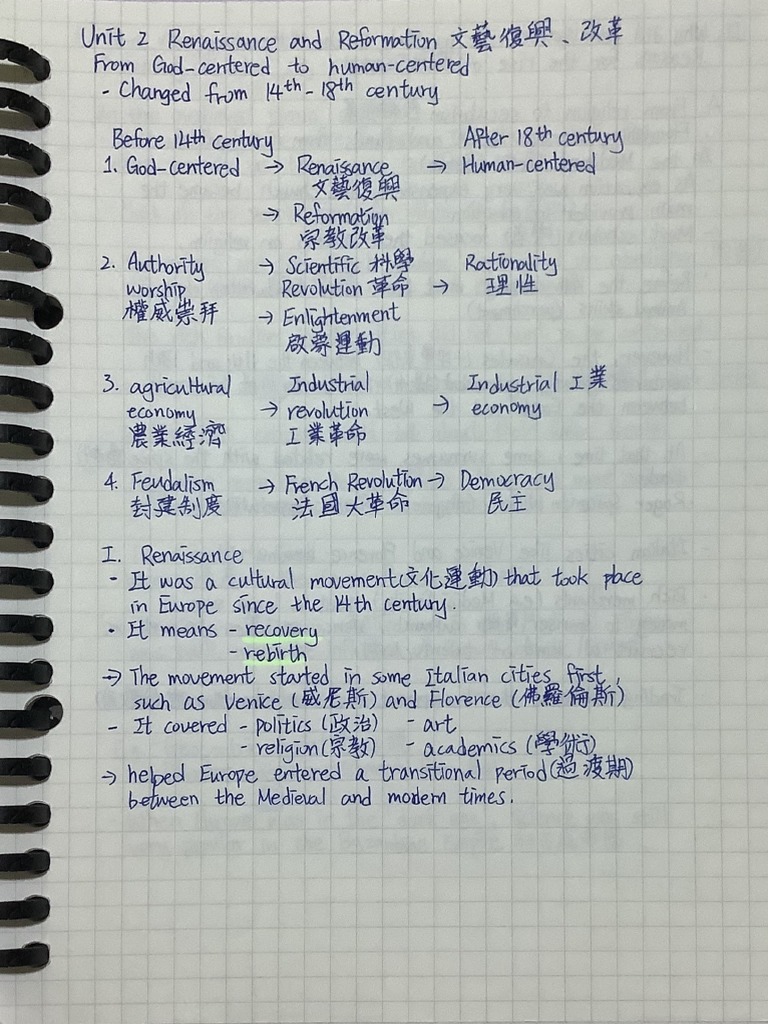 Unit 2 Renaissance and Reformation 文藝復興、改革
From God-centered to human-centered
- Changed from 14th - 18th century
Before 14th century After 18th century
1. God-centered → Renaissance → Human-centered
文藝復興
→ Reformation
宗教改革
2. Authority → Scientific 科學 Rationality
worship Revolution 革命 → 理性
權威崇拜 → Enlightenment
啟蒙運動
3. agricultural Industrial Industrial 工業
economy → revolution → economy
農業經濟 工業革命
4. Feudalism → French Revolution → Democracy
封建制度 法國大革命 民主
I. Renaissance
· It was a cultural movement(文化運動) that took place
in Europe since the 14th century.
· It means - recovery
- rebirth
→ The movement started in some Italian cities first,
such as Venice (威尼斯) and Florence (佛羅倫斯)
- It covered - politics (政治) - art
- religion (宗教) - academics (學術)
→ helped Europe entered a transitional period (過渡期)
between the Medieval and modern times.